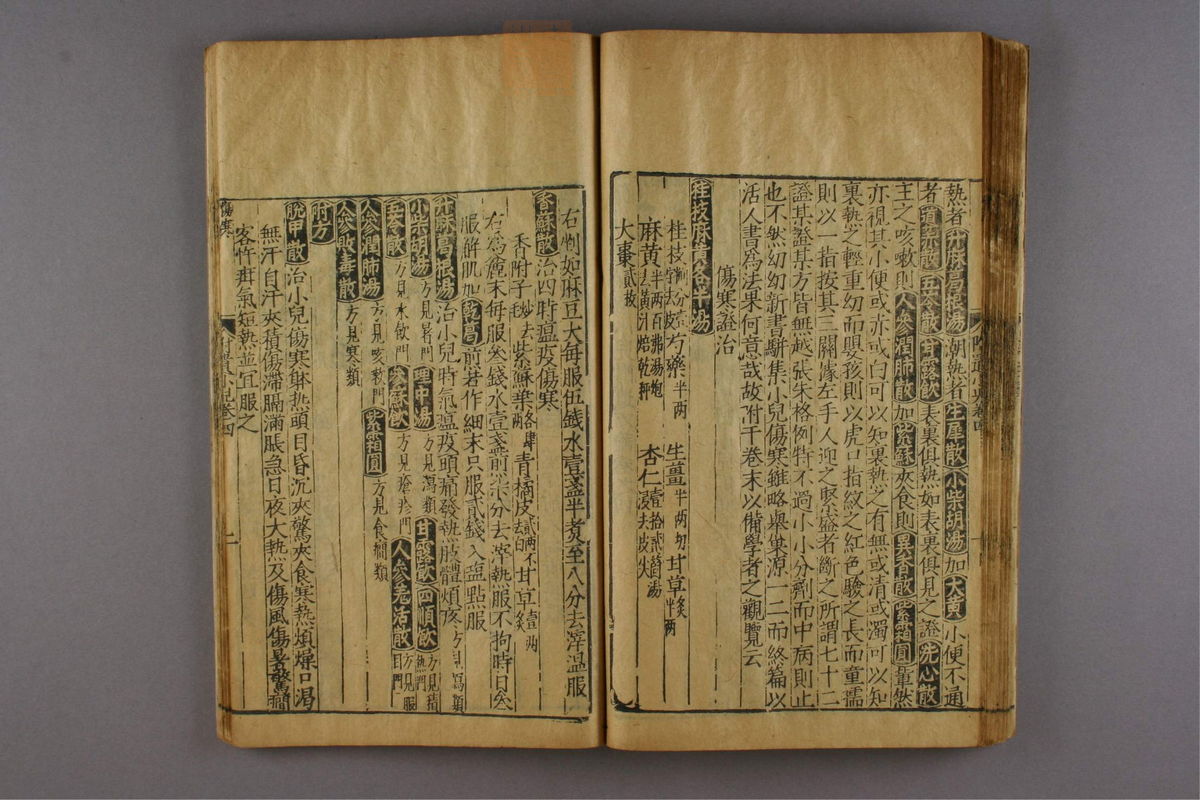 熱者升麻葛根湯潮熱者生犀散小柴胡湯加大黃小便不通
者導赤散五苓散甘露飲表裏俱熱如表裏俱見之證洗心散
主之咳嗽則人參潤肺散加紫蘇夾食則異香散紫霜圓量然
亦視其小便或赤或白可以知裏熱之有無或清或濁可以知
裏熱之輕重幼而嬰孩則以虎口指紋之紅色驗之長而童孺
則以一指按其三關據左手人迎之緊盛者斷之所謂七十二
證某證某方皆無越張朱格例特不過小小分劑而中病則止
也不然幼幼新書駢集小兒傷寒雖略與巢源一二而終篇以
活人書爲法果何意哉故附于卷末以備學者之觀覽云
傷寒證治
桂枝麻黃各半湯
桂枝 芍藥半两 生薑半两切 甘草炙半两
麻黃半两百沸湯泡去黃汁焙乾秤 杏仁壹拾貳箇湯浸去皮尖
大棗貳枚
右剉如麻豆大每服伍錢水壹盞半煮至八分去滓温服
香蘇散治四時瘟疫傷寒
香附子炒去 紫蘇葉各肆两 青橘皮貳两去白不 甘草炙壹两
右為麄末每服叁錢水壹盞煎柒分去滓熱服不拘時日叁
服解肌加乾葛煎若作細末只服貳錢入塩點服
升麻葛根湯治小兒時氣瘟疫頭痛發熱肢體煩疼方見瀉類
小柴胡湯方見暑門 理中湯方見瀉類 甘露飲 四順飲方見積熱門
五苓散方見水飲門 參蘇飲方見瘡疹門 人參羌活散方見眼目門
人參潤肺湯方見咳嗽門 紫霜圓方見食癇類
人參敗毒散方見寒類
附方
脫甲散治小兒傷寒躰热頭目昏沉夾驚夾食寒熱煩燥口渴
無汗自汗夾積傷滯膈滿脹急日夜大熱及傷風傷暑驚癇
客忤班氣短熱並宜服之
傷寒